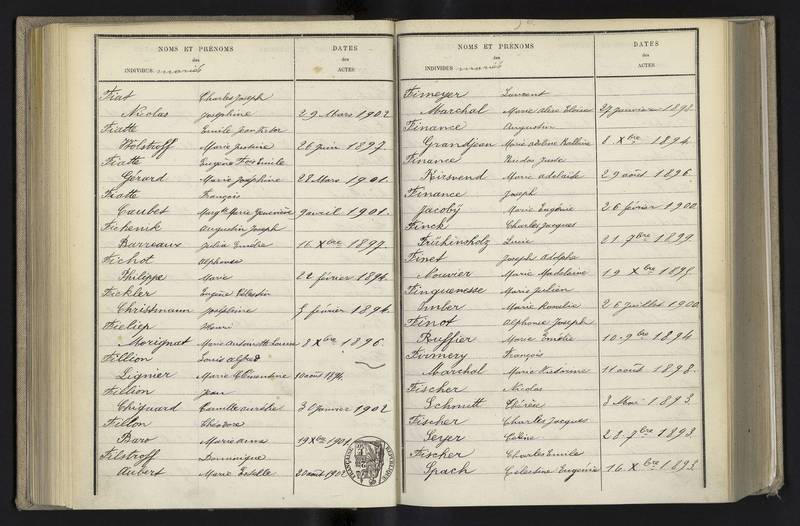 NOMS ET PRÉNOMS
des
INDIVIDUS mariés
DATES
des
ACTES
Fiat Charles Joseph
Nicolas Joséphine 29 Mars 1902
Fiatte Emile Jean Victor
Wolstroff Marie Justine 26 Juin 1897.
Fiatte Eugène Emile
Gérard Marie Joséphine 28 Mars 1901.
Fiatte François
Caubet Margte Marie Geneviève 9 avril 1901.
Fichenik Augustin Joseph
Barreaux Julie Emélie 16 Xbre 1897.
Fichot Alphonse
Philippe Marie 22 février 1894.
Fickler Eugène Célestin
Christmann Joséphine 5 février 1894.
Fieliep Henri
Morignat Marie Antoinette 8 Xbre 1896.
Fillion Louis Alfred
Lignier Marie Clémentine 10 août 1894.
Fillion Jean
Chiquard Camille Aurélie 30 Janvier 1902
Fillon Théodore
Baro Marie Anna 19 Xbre 1901.
Filstroff Dominique
Aubert Marie Estelle 20 août 1902
NOMS ET PRÉNOMS
des
INDIVIDUS mariés
DATES
des
ACTES
Fimeyer Laurent
Marchal Marie Eloïse 27 Janvier 1898.
Finance Augustin
Grandjean Marie 8 Xbre 1894.
Finance Nicolas Juste
Kirsvend Marie Adélaïde 29 août 1896.
Finance Joseph
Jacobÿ Marie Eugénie 26 février 1900.
Finck Charles Jacques
Frühinsholz Lucie 21. 7bre 1899.
Finet Joseph Adolphe
Nouvier Marie Madeleine 19 Xbre 1895.
Finguenesse Marie Julien
Imber Marie Rosalie 26 Juillet 1900.
Finot Alphonse Joseph
Ruffier Marie Emélie 10. 9bre 1894
Firmery François
Marchal Marie Victorine 11 août 1898.
Fischer Nicolas
Schmitt Thérèse 8 Mai 1893.
Fischer Charles Jacques
Seyer Céline 28. 7bre 1893.
Fischer Charles Emile
Spach Célestine Eugénie 16. Xbre 1893.